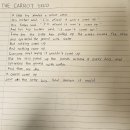 THE CARROT SEED
A little boy planted a carrot seed.
His mother said, "I'm afraid it won't come up."
His father said, "I'm afraid it won't come up."
And his big brother said, "It won't come up."
Every day the little boy pulled up the weeds around the seed
and sprinkled the ground with water.
But nothing came up.
And nothing came up.
Everyone kept saying it wouldn't come up.
But he still pulled up the weeds around it every day and
sprinkled the ground with water.
And then, one day,
a carrot came up
just as the little boy had known it would.